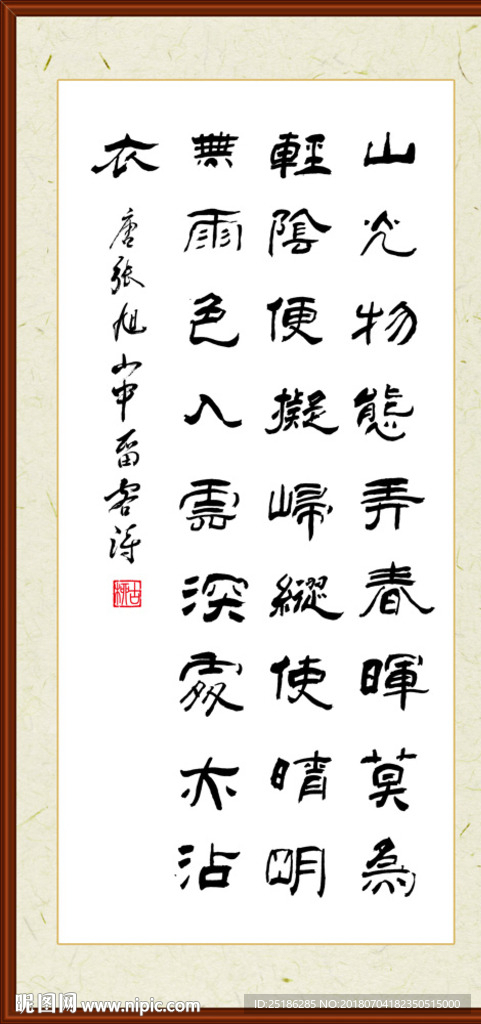 山光物態弄春暉莫為
輕陰便擬歸縱使晴明
無雨色入雲深處亦沾
衣 唐張旭山中留客詩
昵图网 www.nipic.com
ID:25186285 NO:20180704182350515000